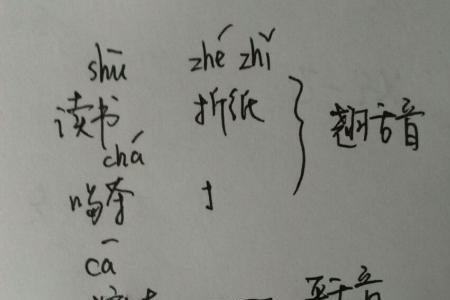 shū zhé zhǐ
读书 折纸 翘舌音
chá
喝茶
cā
平舌音